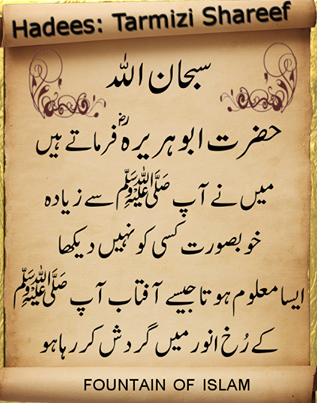 Hadees: Tarmizi Shareef
سبحان اللہ
حضرت ابو ہریرہؓ فرماتے ہیں
میں نے آپ ﷺ سے زیادہ
خوبصورت کسی کو نہیں دیکھا
ایسا معلوم ہوتا جیسے آفتاب آپ ﷺ
کے رُخ انور میں گردش کر رہا ہو
FOUNTAIN OF ISLAM